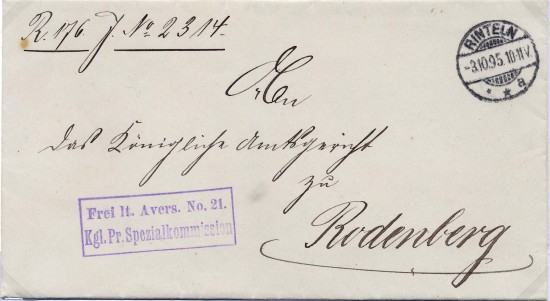 R. 176 J. No 2314.
RINTELN
-3.10.95.10-11V.
* * a
An
das Königliche Amtsgericht
zu
Rodenberg
Frei lt. Avers. No. 21.
Kgl. Pr. Spezialkommission